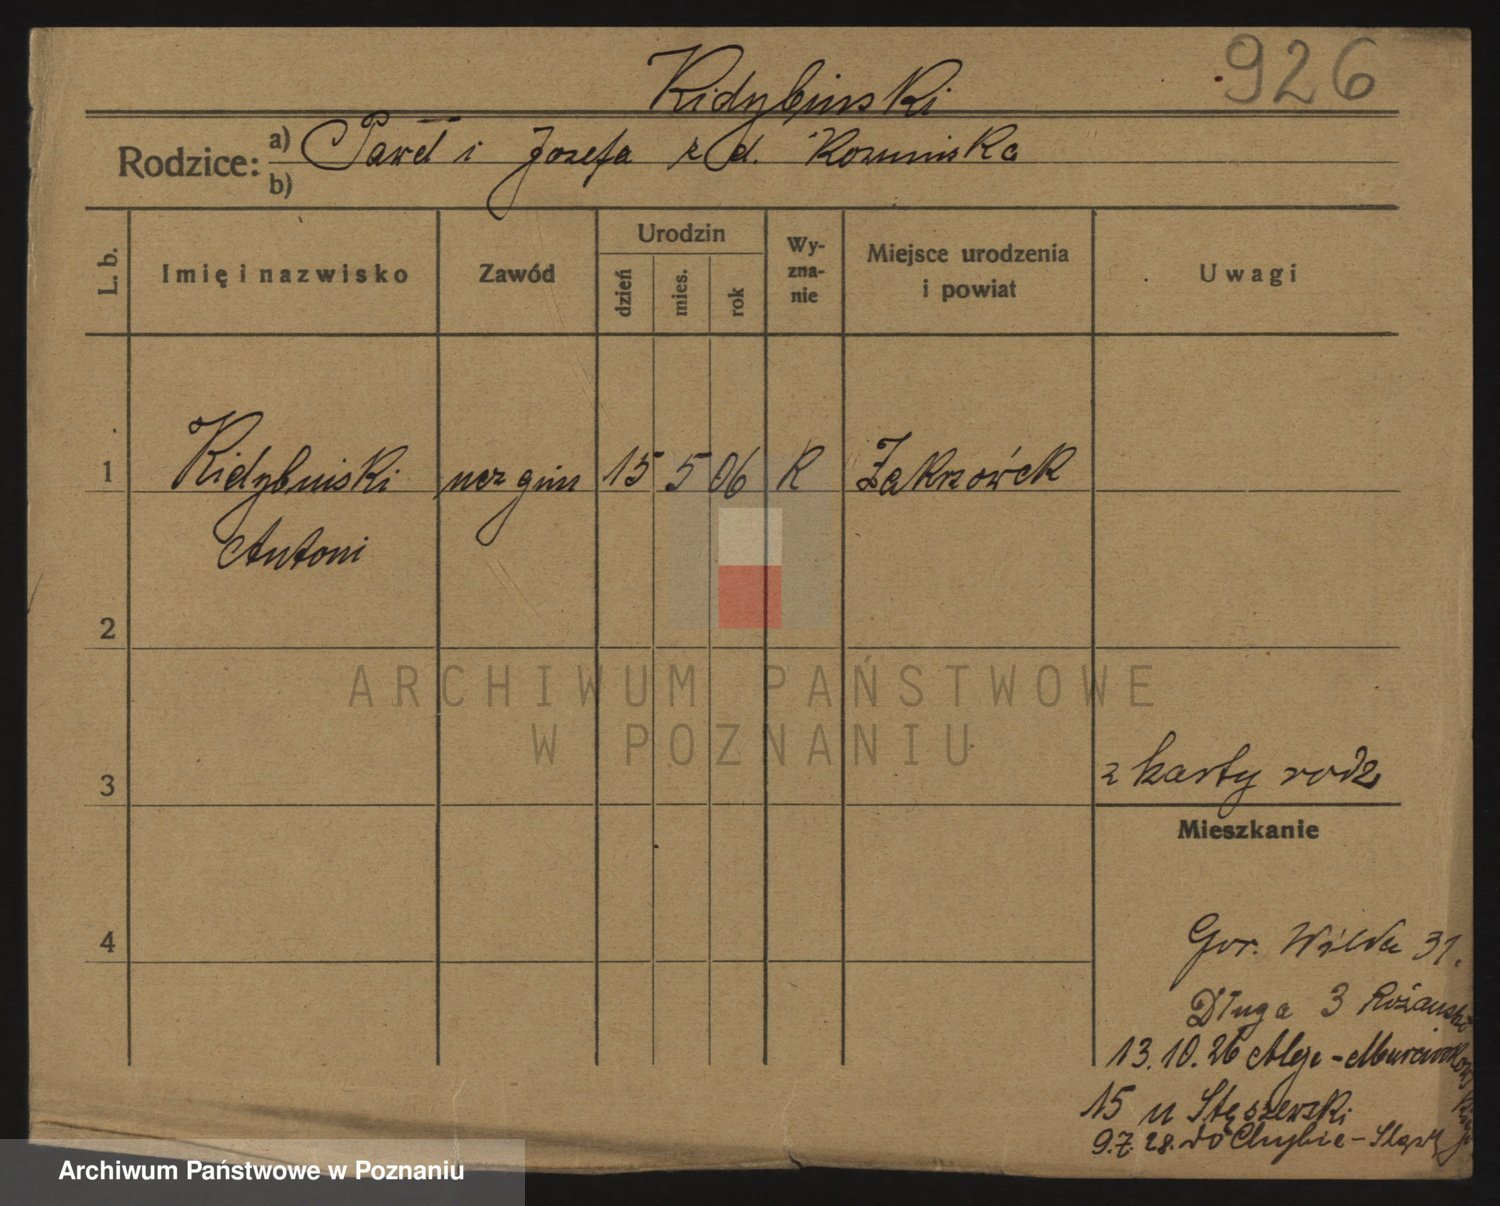 926
Kidybinski
Rodzice: a) Paweł i Jozefa z d. Kozminska
b)
L. b.
Imię i nazwisko
Zawód
Urodzin
dzień
mies.
rok
Wy-
zna-
nie
Miejsce urodzenia
i powiat
Uwagi
1 Kidybinski ucz gim 15 5 06 R Zakrzówek
Antoni
2
ARCHIWUM PAŃSTWOWE
W POZNANIU
3
z karty rodz
Mieszkanie
4
Gor. Wilda 31.
Długa 3
13.10.26 Aleje - Marcinkowskiego
15 u Stęszewski
9.7.28. do Chybie - Śląsk
Archiwum Państwowe w Poznaniu